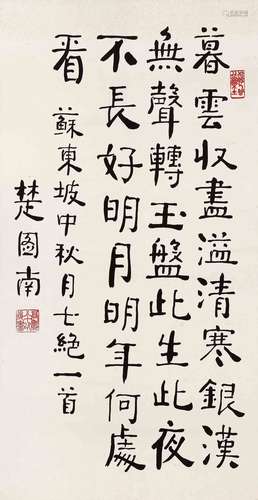 暮雲收盡溢清寒銀漢
無聲轉玉盤此生此夜
不長好明月明年何處
看 蘇東坡中秋月七絕一首
楚图南